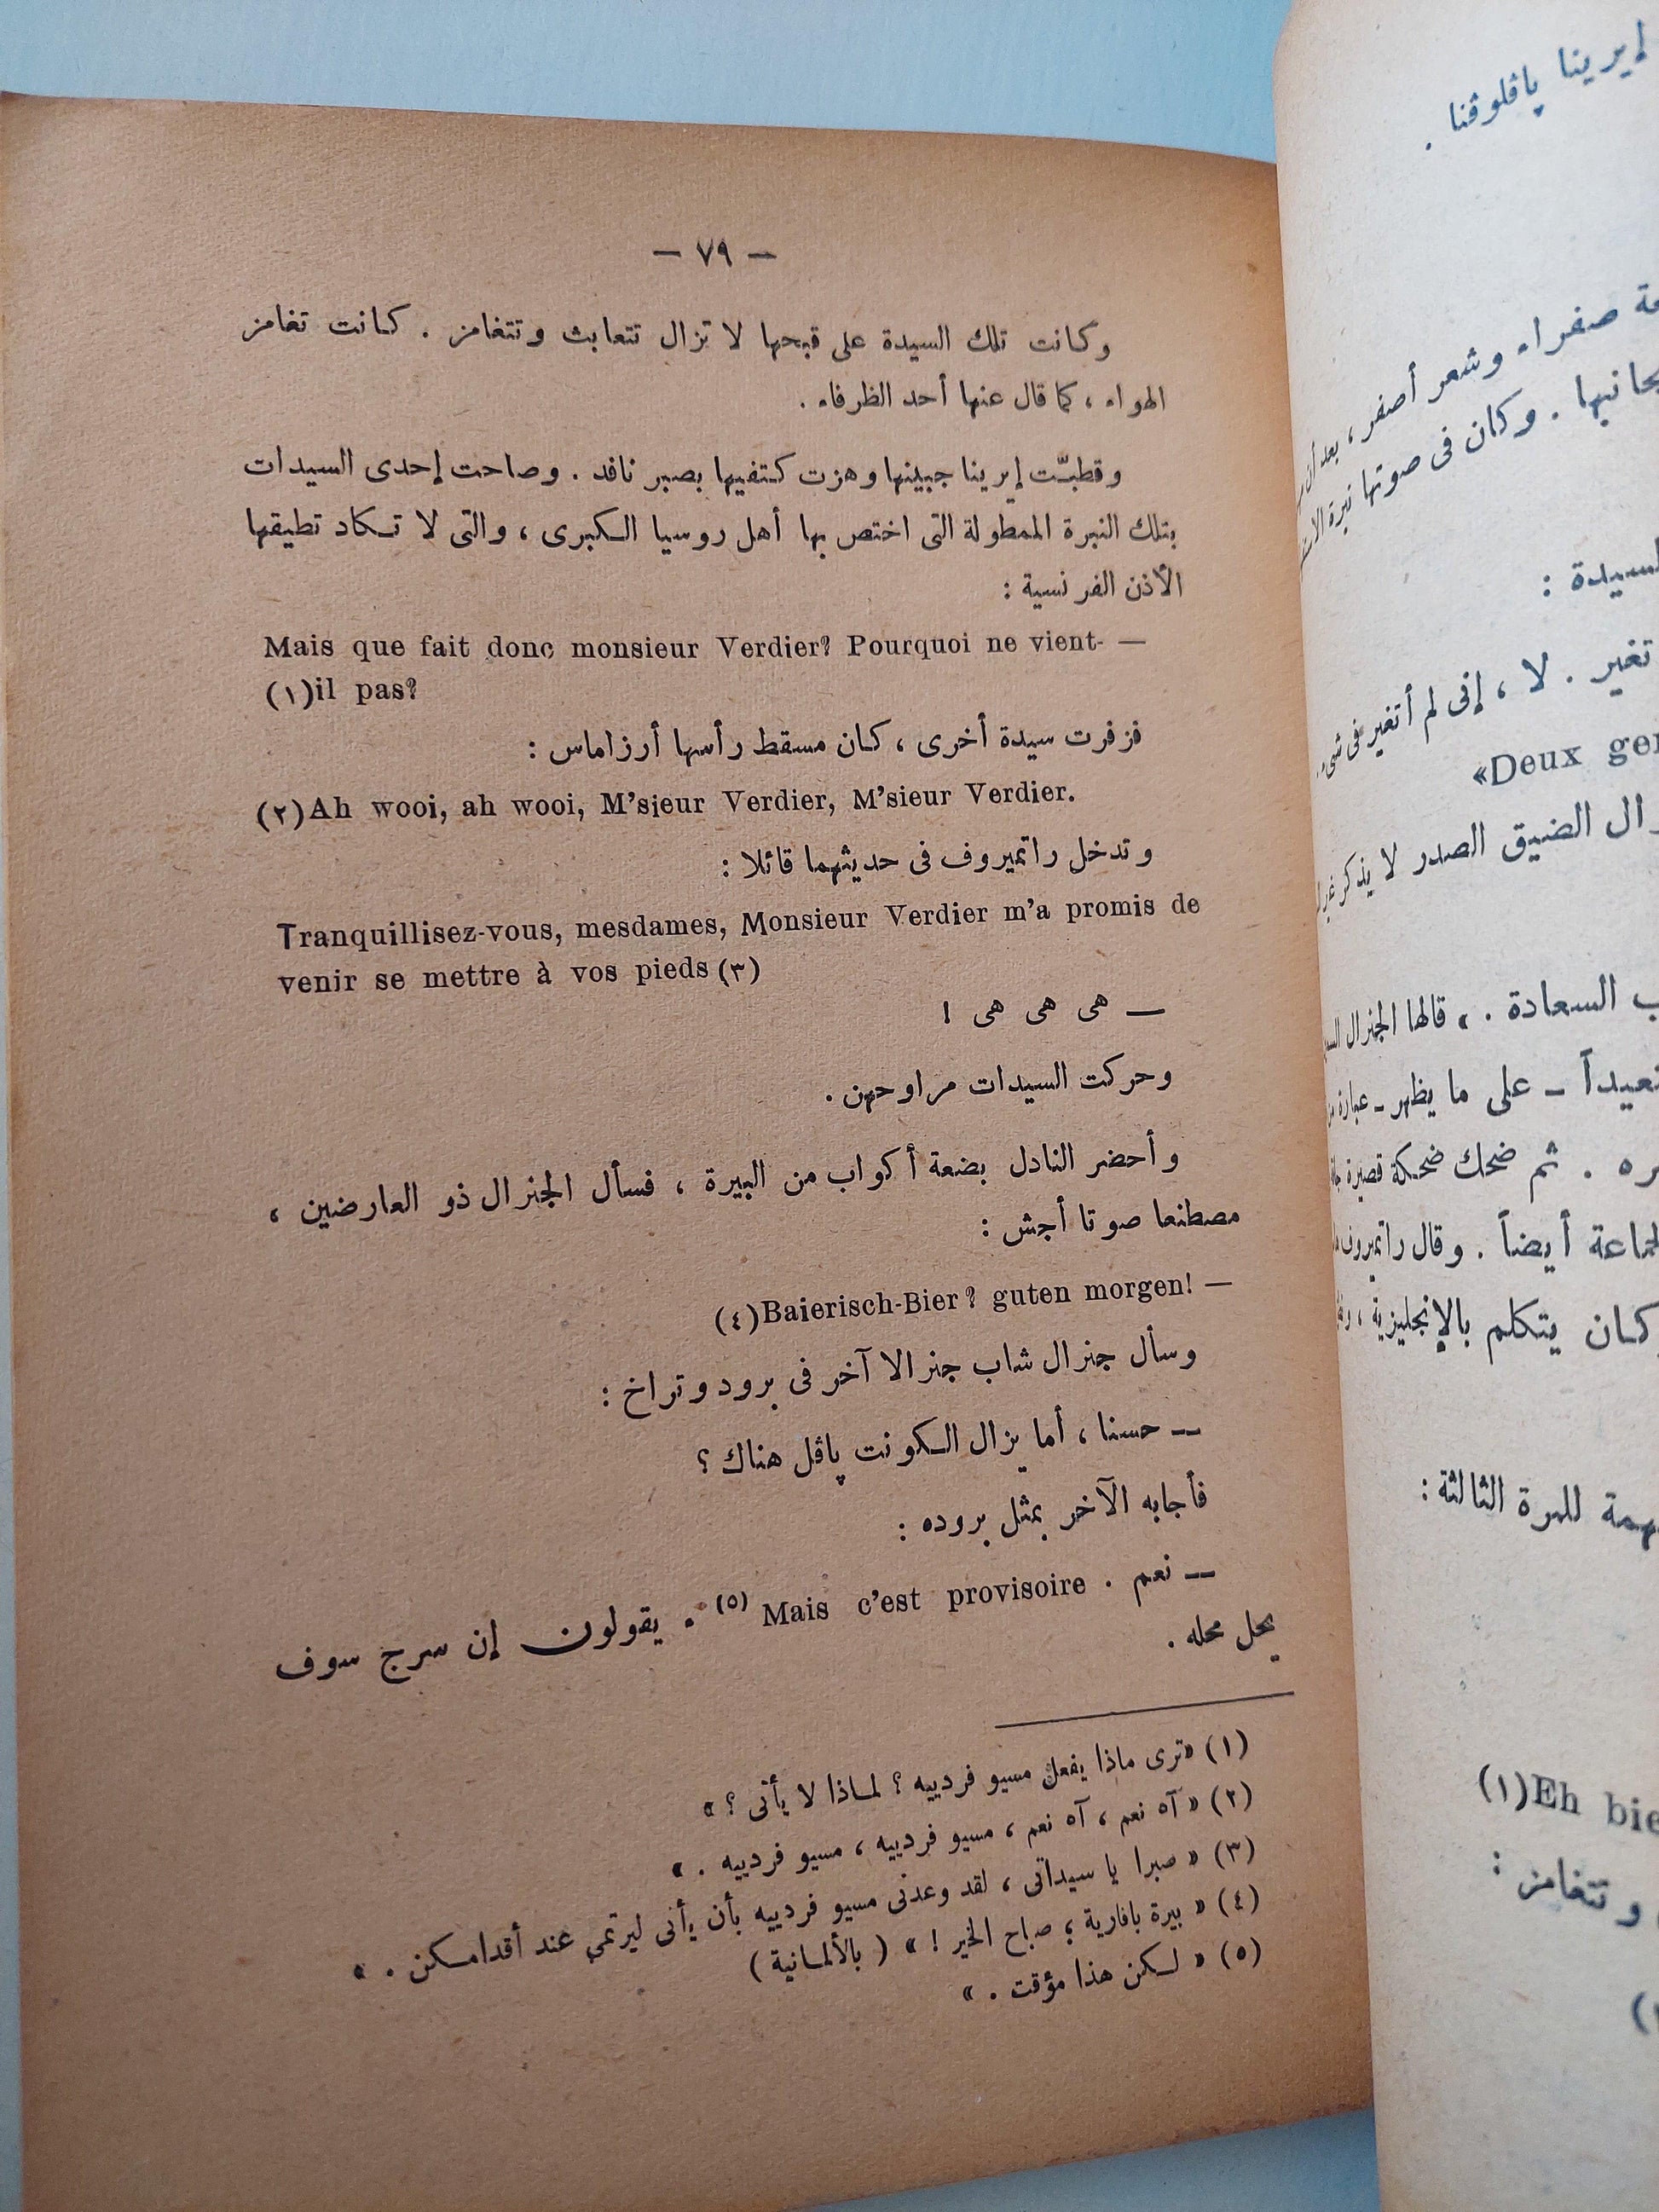 — ٧٩ —
وكانت تلك السيدة على قبحها لا تزال تتعابث وتتغامز . كانت تغامز
الهواء ، كما قال عنها أحد الظرفاء .
وقطبّت إيرينا جبينها وهزت كتفيها بصبر نافد . وصاحت إحدى السيدات
بتلك النبرة الممطولة التى اختص بها أهل روسيا الكبرى ، والتى لا تكاد تطيقها
الأذن الفرنسية :
Mais que fait donc monsieur Verdier? Pourquoi ne vient- —
(١)il pas?
فزفرت سيدة أخرى ، كان مسقط رأسها أرزاماس :
(٢)Ah wooi, ah wooi, M'sieur Verdier, M'sieur Verdier.
وتدخل راتميروف فى حديثهما قائلا :
Tranquillisez-vous, mesdames, Monsieur Verdier m'a promis de
venir se mettre à vos pieds(٣)
— هى هى هى !
وحركت السيدات مراوحهن .
وأحضر النادل بضعة أكواب من البيرة ، فسأل الجنرال ذو العارضين ،
مصطنعا صوتا أجش :
(٤)Baierisch-Bier? guten morgen! —
وسأل جنرال شاب جنرالا آخر فى برود وتراخ :
— حسنا ، أما يزال الكونت پاڤل هناك ؟
فأجابه الآخر بمثل بروده :
— نعم . Mais c'est provisoire (٥) . يقولون إن سرج سوف
يحل محله .
(١) «ترى ماذا يفعل مسيو فردييه ؟ لماذا لا يأتى ؟ »
(٢) « آه نعم ، آه نعم ، مسيو فردييه ، مسيو فردييه . »
(٣) « صبرا يا سيداتى ، لقد وعدنى مسيو فردييه بأن يأتى ليرتمى عند أقدامكن . »
(٤) « بيرة بافارية ؛ صباح الخير ! » ( بالألمانية )
(٥) « لكن هذا مؤقت . »
إيرينا پاڤلوڤنا .
صفراء وشعر أصفر ، بعد أن
. وكان فى صوتها نبرة
السيدة :
تغير . لا ، إنى لم أتغير فى شىء
«Deux
الضيق الصدر لا يذكر غير
السعادة . » قالها الجنرال
— على ما يظهر — عبارة
. ثم ضحك ضحكة قصيرة
أيضاً . وقال راتميروف
وكان يتكلم بالإنجليزية ،
للمرة الثالثة :
(١)Eh
وتتغامز :